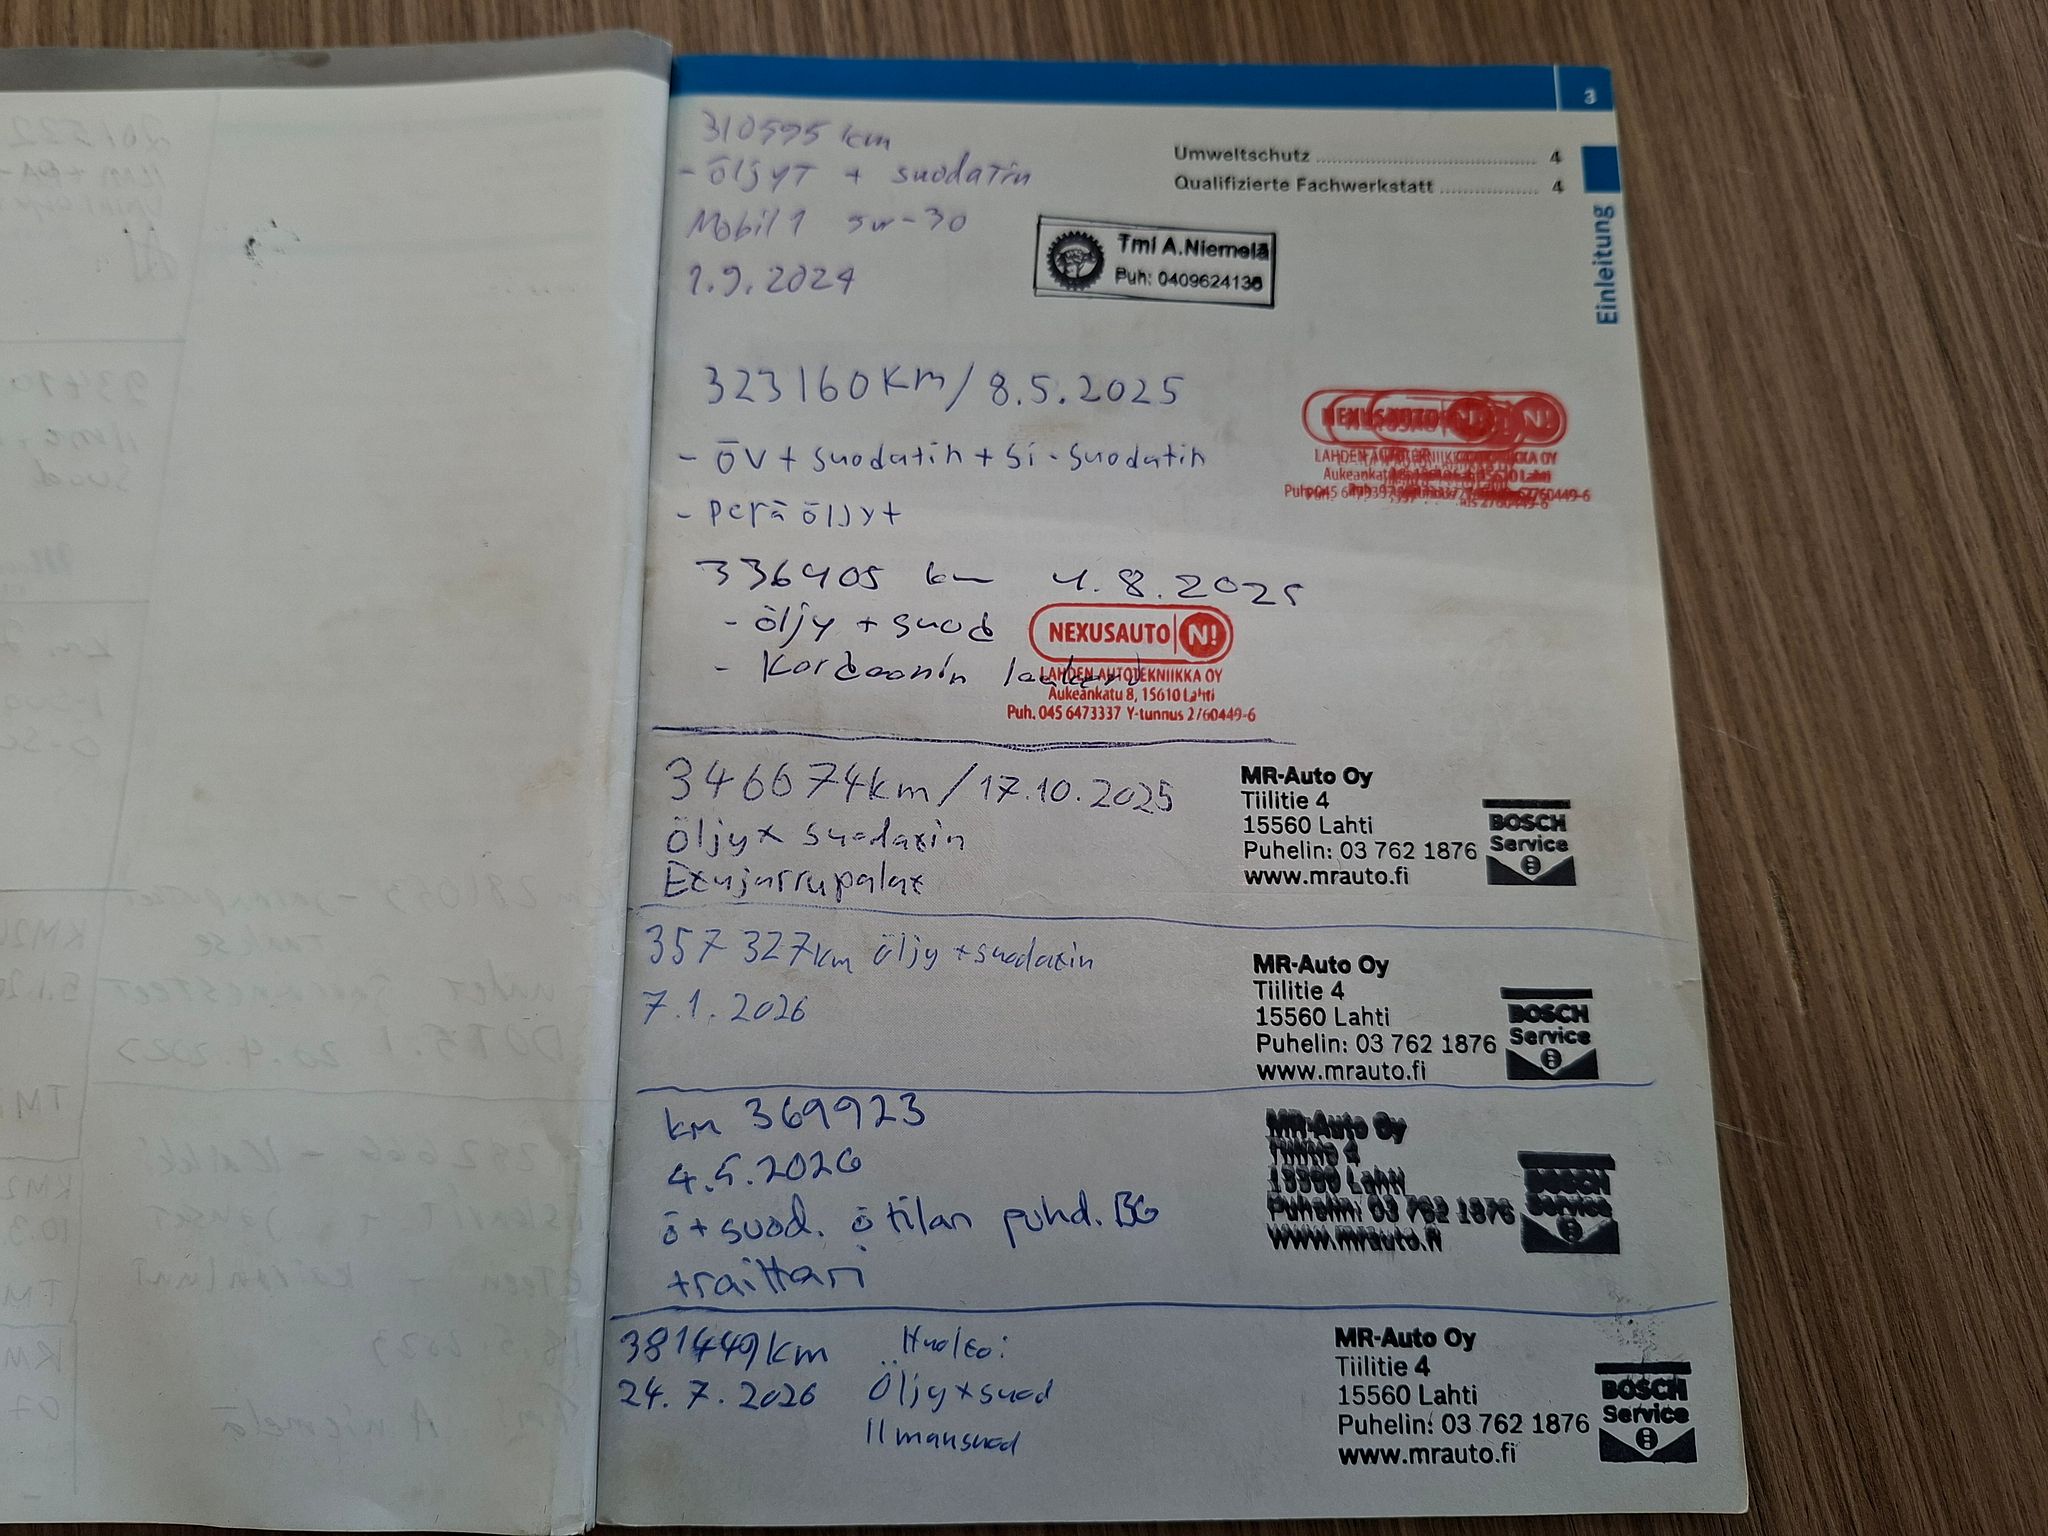 3
Umweltschutz ........ 4
Qualifizierte Fachwerkstatt ........ 4
Einleitung
310595 km
- öljyt + suodatin
Mobil 1 5w-30
1.9.2024
Tmi A.Niemelä
Puh: 0409624136
323160 km / 8.5.2025
- öv + suodatin + si-suodatin
- perä öljyt
NEXUSAUTO N!
336405 km 4.8.2025
- öljy + suod
- Kardaanin laakeri
NEXUSAUTO N!
LAHDEN AUTOTEKNIIKKA OY
Aukeankatu 8, 15610 Lahti
Puh. 045 6473337 Y-tunnus 2760449-6
346674km / 17.10.2025
Öljy+ suodatin
Etujarrupalat
MR-Auto Oy
Tiilitie 4
15560 Lahti
Puhelin: 03 762 1876
www.mrauto.fi
BOSCH
Service
357 327km öljy + suodatin
7.1.2026
MR-Auto Oy
Tiilitie 4
15560 Lahti
Puhelin: 03 762 1876
www.mrauto.fi
BOSCH
Service
km 369923
4.5.2026
ö + suod. ö tilan puhd. BG
+raittari
MR-Auto Oy
Tiilitie 4
15560 Lahti
Puhelin: 03 762 1876
www.mrauto.fi
BOSCH
Service
381449km Huolto:
24.7.2026 Öljy + suod
Ilmansuod
MR-Auto Oy
Tiilitie 4
15560 Lahti
Puhelin: 03 762 1876
www.mrauto.fi
BOSCH
Service